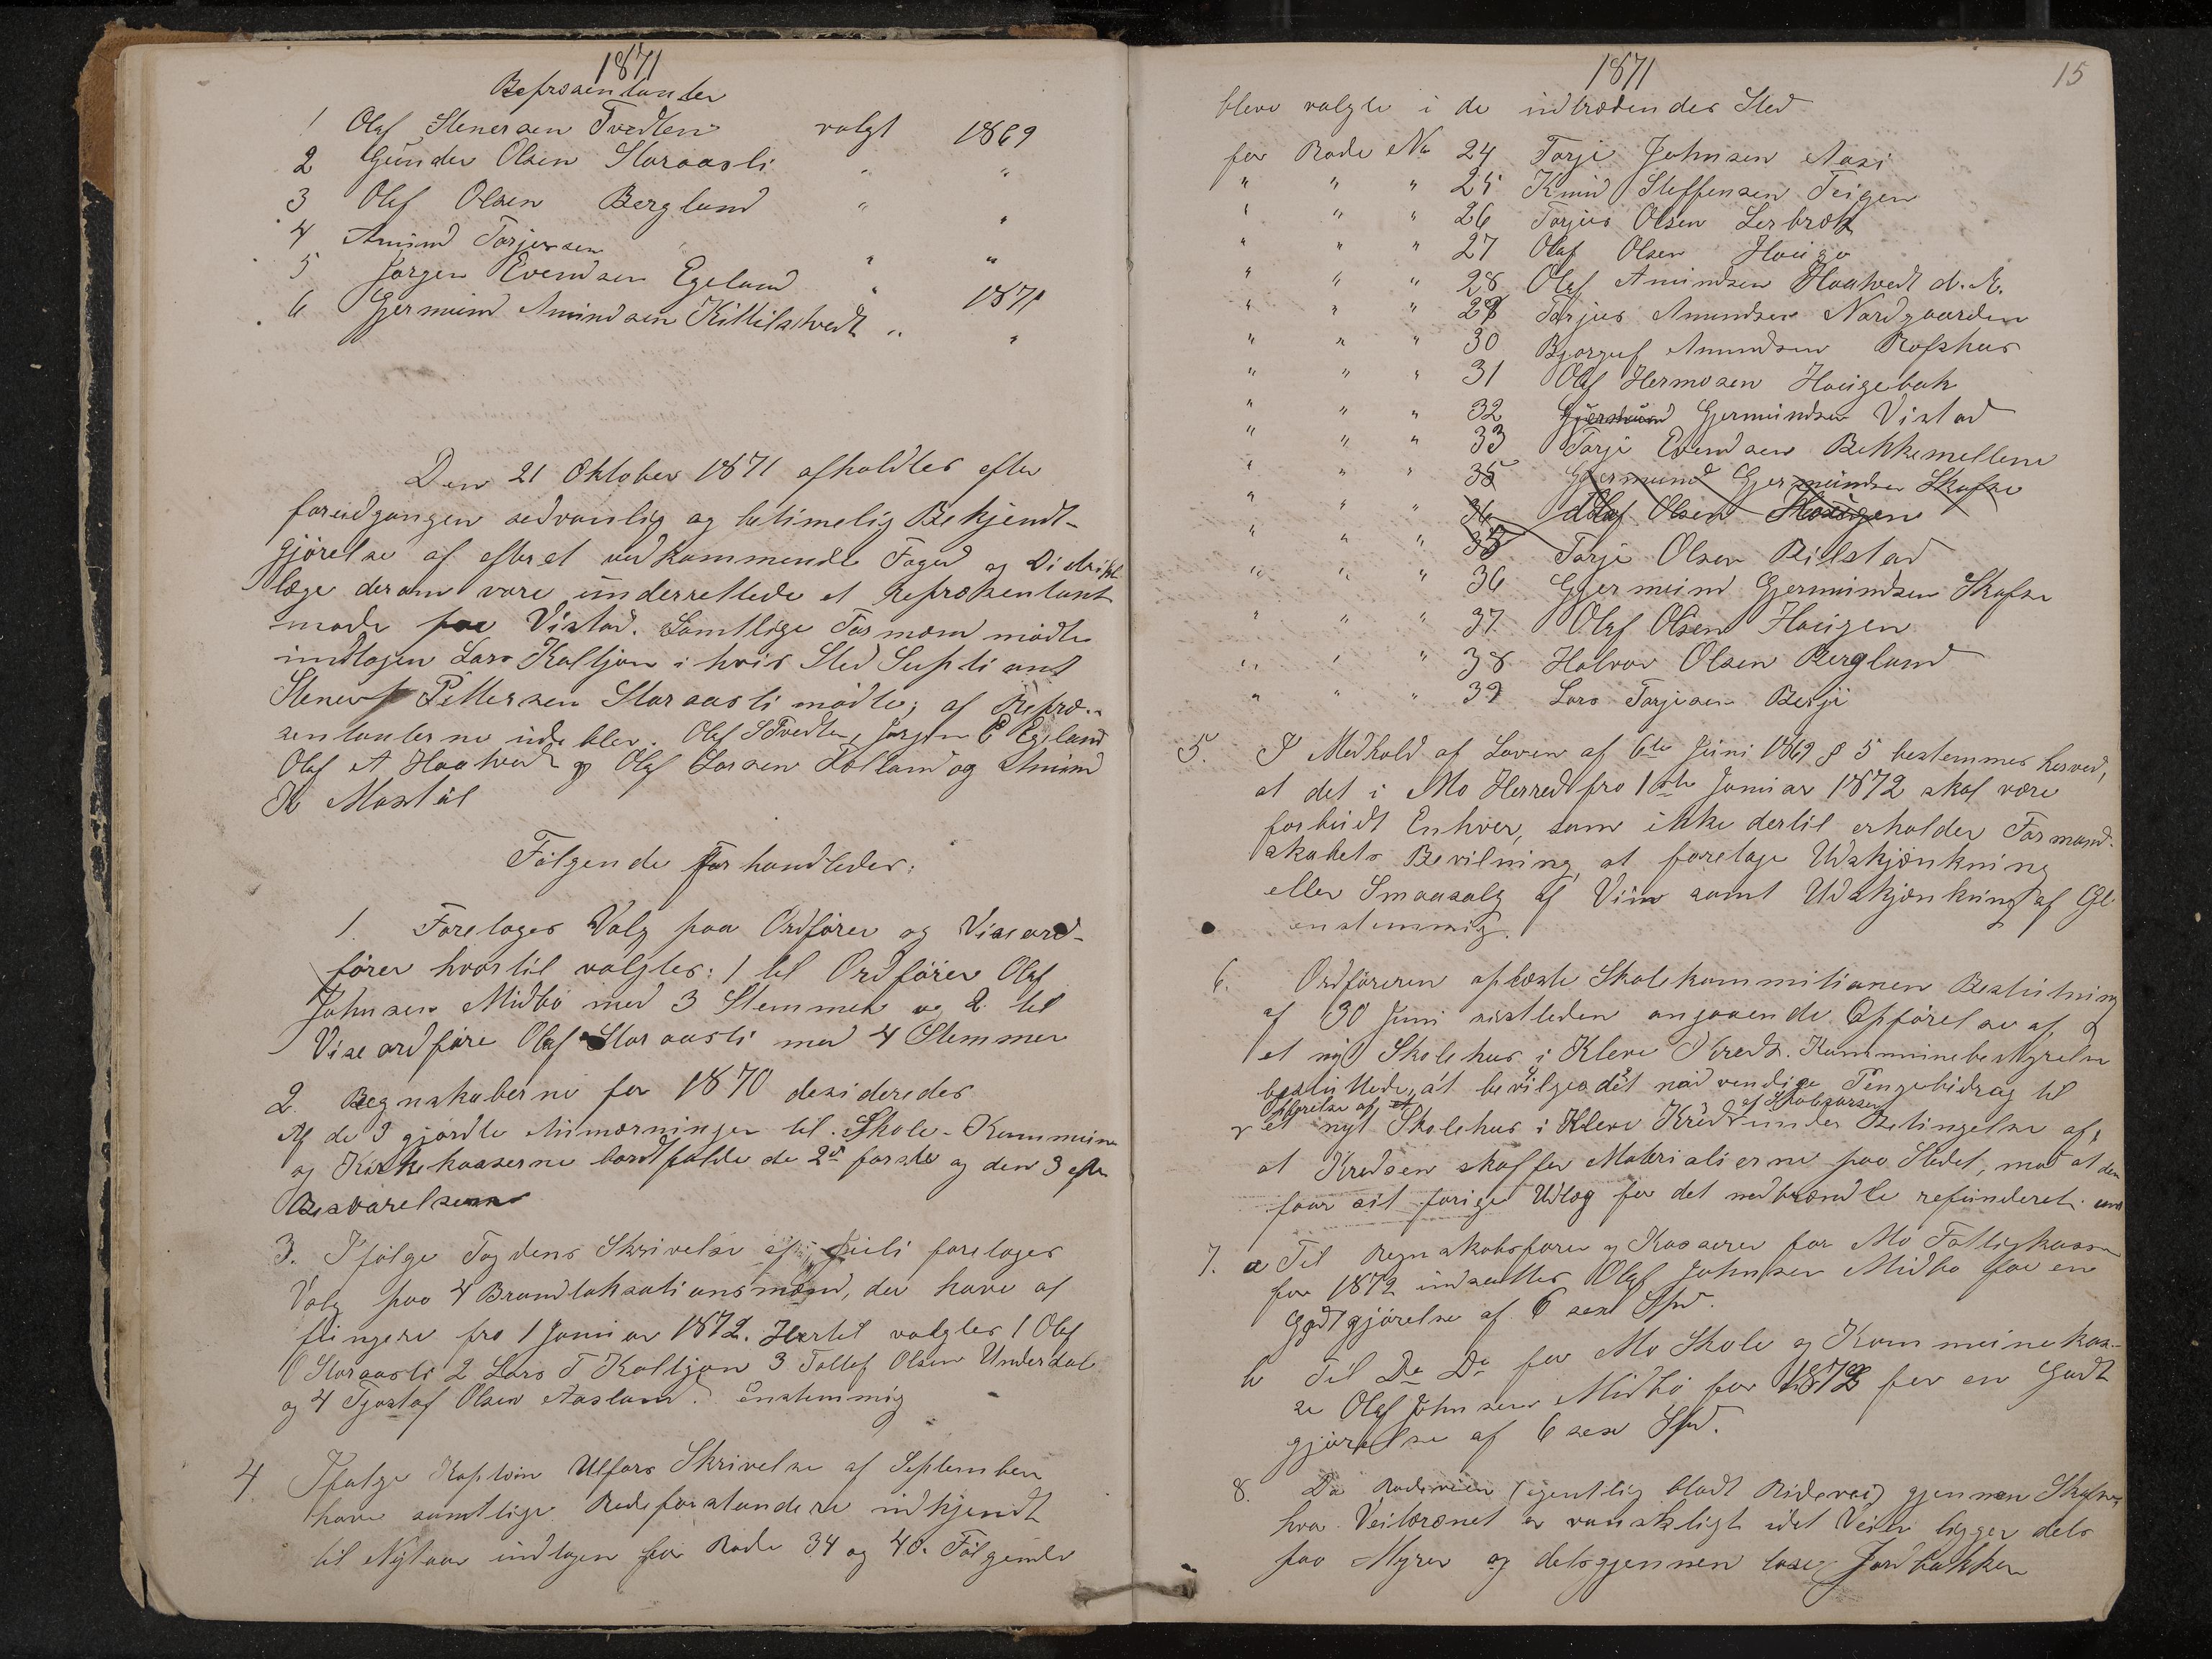 1871
Repræsentanter
1 Olaf Stenersen Tvedten valgt 1869
2 Gunder Olsen Storaasli " "
3 Olef Olsen Berglund " "
4 Amund Torjersen " "
5 Jørgen Evensen Egeland " 1871
6 Gjermund Amundsen Kittilstvedt " "
Den 21 Oktober 1871 afholdtes efter
foreudgangen sedvanlig og betimelig Bekjendt-
gjörelse af efter et vedkommende Foged og Distrikt
læge derom vare underrettede et Repræsentant
møde paa Vistad. Samtlige Formænd mødte
undtagen Lars Kaltjøn i hvis Sted Supliant
Stener Pettersen Storaasli mødte; af Repræ-
sentanterne udeblev. Olaf S Tvedten, Jørgen E Egeland
Olaf A Haatvedt og Olaf Larsen Holland og Amund
K Mostøl
Følgende forhandledes:
1. Foretoges Valg paa Ordförer og Viseord-
förer hvortil valgtes: 1 til Ordförer Olaf
Johnsen Midbö med 3 Stemmer og 2 til
Viseordföre Olaf Storaasli med 4 Stemmer
2. Regnskaberne for 1870 desideredes
Af de 3 gjordte Anmærninger til Skole- Kommune
og Kirkekasserne bortfaldt de 2de første og den 3 efter
Besvarelsen
3. Ifölge Fogdens Skrivelse af Juli foretoges
Valg paa 4 Brandtaksationsmænd, der have at
fungere fra 1 Januar 1872. Hertil valgtes 1 Olaf
O Storaasli 2 Lars T Kaltjøn 3 Tollef Olsen Underdal
og 4 Tjostof Olsen Aasland. Enstemmig
4 Ifølge Kaptein Ulfers Skrivelse af September
have samtlige Rodeforstandere udtjendt
til Nytaar undtagen for Rode 34 og 40. Følgende
1871
15
bleve valgte i de udtrædendes Sted
for Rode No 24 Torje Johnsen Aasi
" " " 25 Knud Steffensen Teigen
" " " 26 Torjus Olsen Lerbræk
" " " 27 Olaf Olsen Hauge
" " " 28 Olaf Amundsen Haatvedt d. Æ.
" " " 29 Torjus Amundsen Nordgaarden
" " " 30 Bjorguf Amundsen Rofshus
" " " 31 Olaf Hermosen Haugebak
" " " 32 Gjermund Gjermundsen Vistad
" " " 33 Torje Evendsen Bekkemellem
" " " 35 Gjermund Gjermundsen Skafse
" " " 36 Olaf Olsen Haugen
" " " 35 Torje Olsen Rulstad
" " " 36 Gjermund Gjermundsen Skafse
" " " 37 Olaf Olsen Haugen
" " " 38 Halvor Olsen Berglund
" " " 39 Lars Torjesen Berji
5. I Medhold af Loven af 6te Juni 1869 § 5 bestemmes herved,
at det i Mo Herred fra 1ste Januar 1872 skal være
forbudt Enhver, som ikke dertil erholder Formand-
skabets Bevilning, at foretage Udskjænkning
eller Smaasalg af Viin samt Udskjænkning af Øl
enstemmig.
6. Ordföreren oplæste Skolekommitionen Beslutning
af 30 Juni sistleden angaaende Opförelse af
et nyt Skolehus i Kleve Kreds. Kommunebestyrelsen
besluttede, at bevilge det nødvendige Pengebidrag til
Opförelse af af Skolekassen
et nyt Skolehus i Kleve Kreds under Betingelse af,
at Kredsen skaffer Materialierne paa Stedet, mod at den
faar sit forige Udlæg for det nedbrændte refunderet.
7. a Til Regnskabsförer og Kasserer for Mo Fattigkasse
for 1872 indsættes Olaf Johnsen Midbö for en
Godtgjörelse af 6 sex Spd.
b Til Do Do for Mo Skole og Kommunekas-
se Olaf Johnsen Midbö for 1872 for en Godt
gjörelse af 6 sex Spd.
8. Da Rodeveien (egentlig blodt Ridevei) gjennem Skafse,
hvor Veiterænet er vanskligt idet Veien ligger dels
paa Myrer og dels gjennem løse Jordbakker